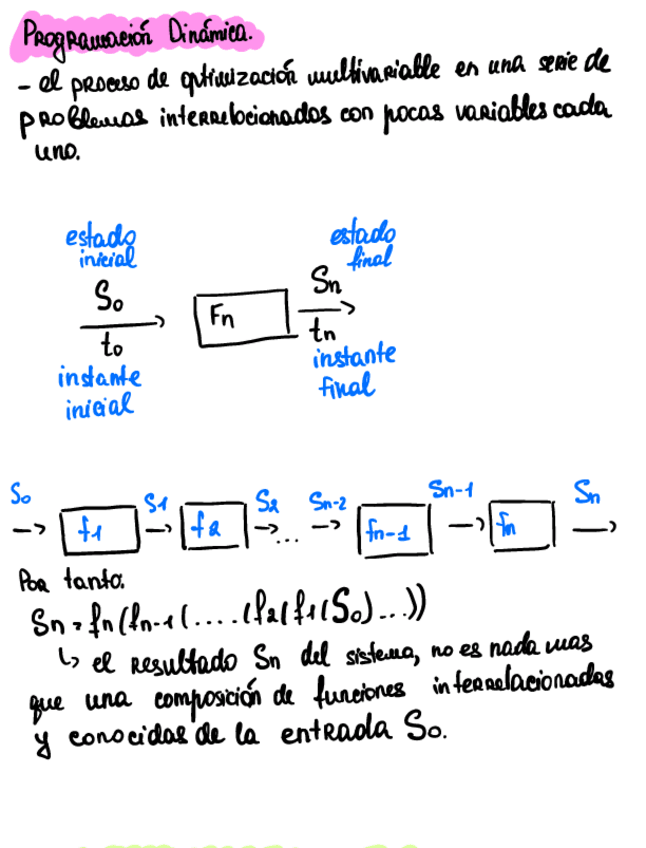 Programación Dinámica.
- el proceso de optimización multivariable en una serie de
problemas interrelacionados con pocas variables cada
uno.
estado inicial
estado final
S₀
Fn
Sn
t₀
tn
instante inicial
instante final
S₀ S1 S2 Sn-2 Sn-1 Sn
→ f1 → f2 →... → fn-1 → fn →
Por tanto:
Sn = fn(fn-1(....(f2(f1(S₀)...))
↳ el resultado Sn del sistema, no es nada mas
que una composición de funciones interrelacionadas
y conocidas de la entrada S₀.